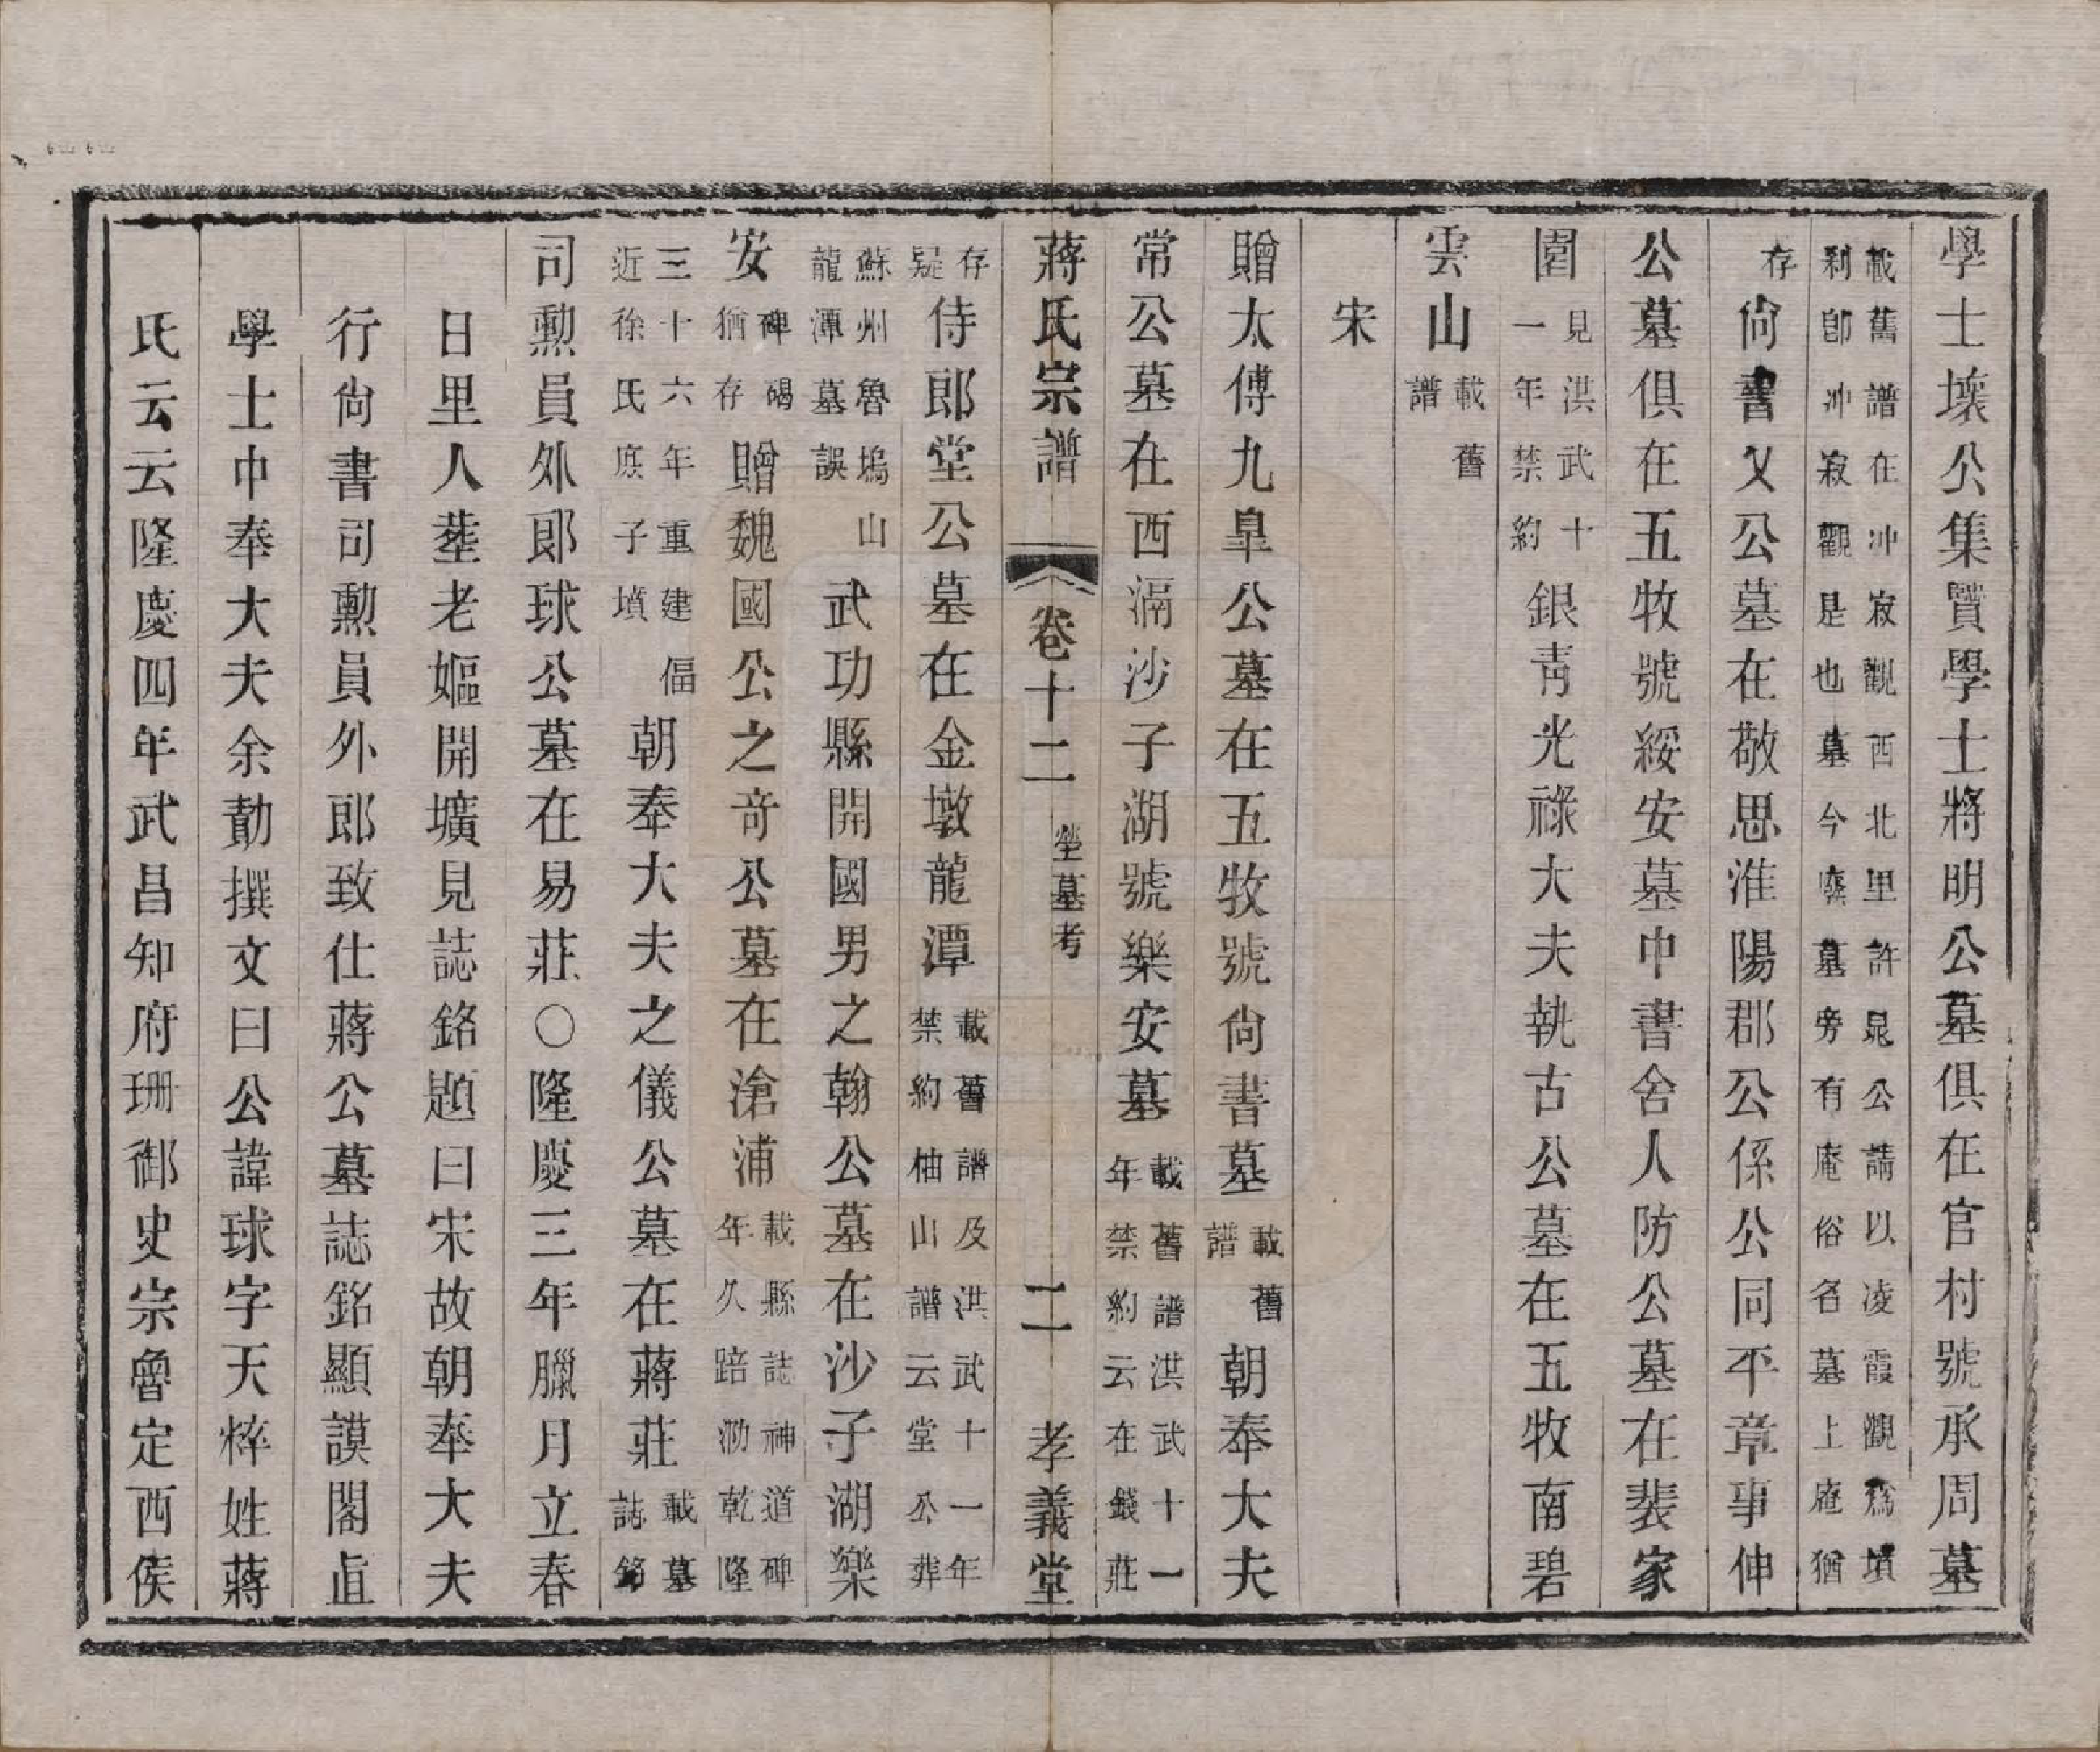 學士壞公集賢學士將明公墓俱在官村號承周墓
載舊譜在冲寂觀西北里許晁公請以凌霞觀爲墳
刹卽冲寂觀是也墓今廢墓旁有庵俗名墓上庵猶
存　尙書乂公墓在敬思淮陽郡公係公同平章事伸
公墓俱在五牧號綏安墓中書舍人防公墓在裴家
圍見洪武十一年禁約　銀靑光祿大夫執古公墓在五牧南碧
雲山載舊譜
宋
贈太傅九臯公墓在五牧號尙書墓載舊譜　朝奉大夫
常公墓在西滆沙子湖號樂安墓載舊譜洪武十一年禁約云在錢莊
蔣氏宗譜　卷十二　塋墓考　二　孝義堂
存疑　侍郎堂公墓在金墩龍潭載舊譜及洪武十一年禁約柚山譜云堂公葬
蘇州魯塢山龍潭墓誤　武功縣開國男之翰公墓在沙子湖樂
安碑碣猶存　贈魏國公之奇公墓在滄浦載縣誌神道碑年久踣泐乾隆
三十六年重建偪近徐氏庶子墳　朝奉大夫之儀公墓在蔣莊載墓誌銘
司勲員外郞球公墓在易莊〇隆慶三年臘月立春
日里人塟老嫗開壙見誌銘題曰宋故朝奉大夫
行尙書司勲員外郎致仕蔣公墓誌銘顯謨閣直
學士中奉大夫余勭撰文曰公諱球字天粹姓蔣
氏云云隆慶四年武昌知府珊御史宗魯定西侯